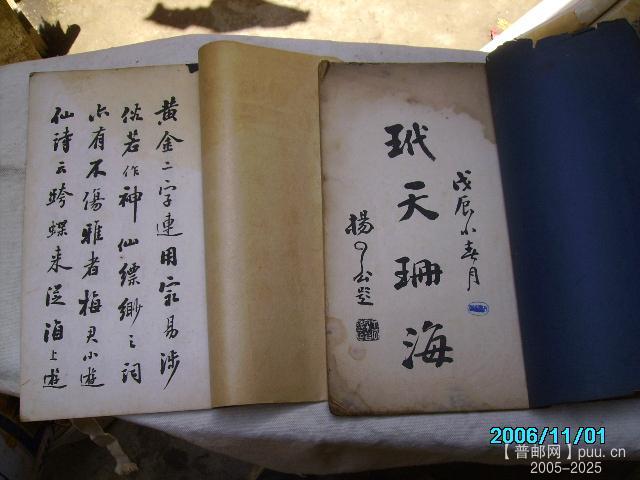 戊辰小春月
玳天珊海
楊了公題
黄金二字連用冣易涉
俗若作神仙縹緲之詞
亦有不傷雅者梅君小遊
仙詩云跨蝶来從海上遊
2006/11/01
【普邮网】puu.cn
2005-2025